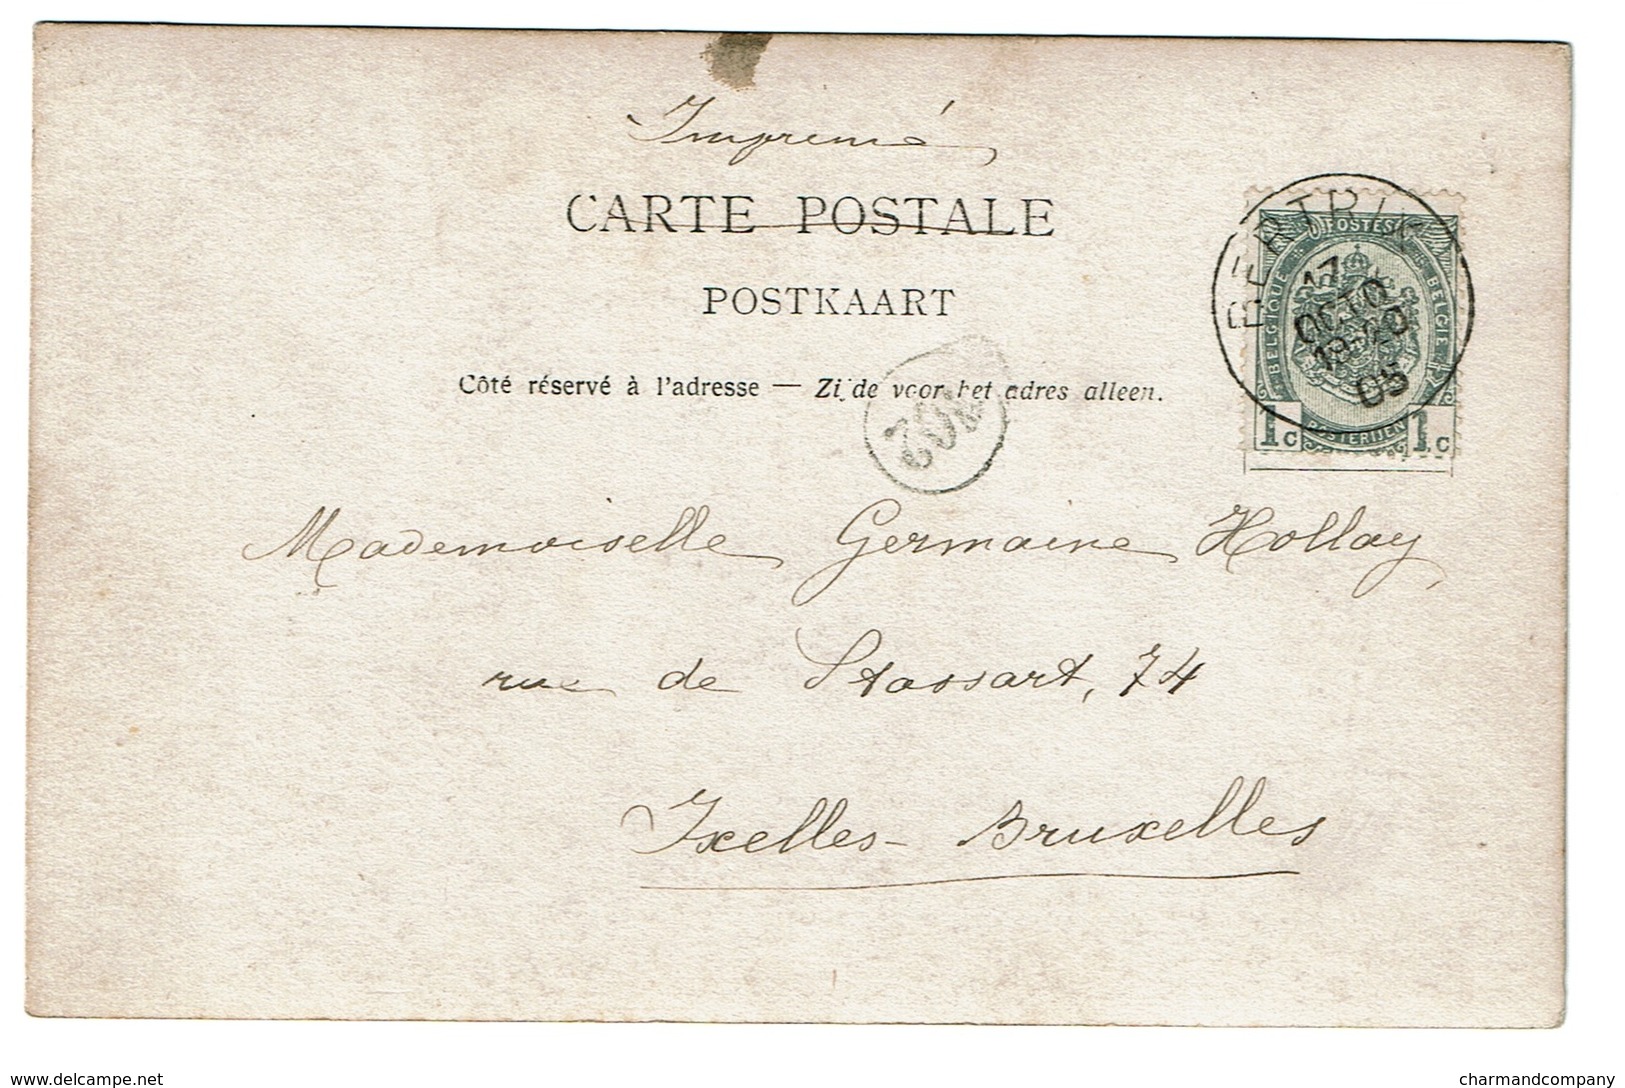 Imprimé
CARTE POSTALE
POSTKAART
Côté réservé à l'adresse — Zijde voor het adres alleen.
BERTRIX
17
OCTO
18-20
05
POSTES
BELGIQUE
BELGIE
1c POSTERIJEN 1c
Mademoiselle Germaine Hollay,
rue de Stassart, 74
Ixelles-Bruxelles
delcampe.net
charmandcompany